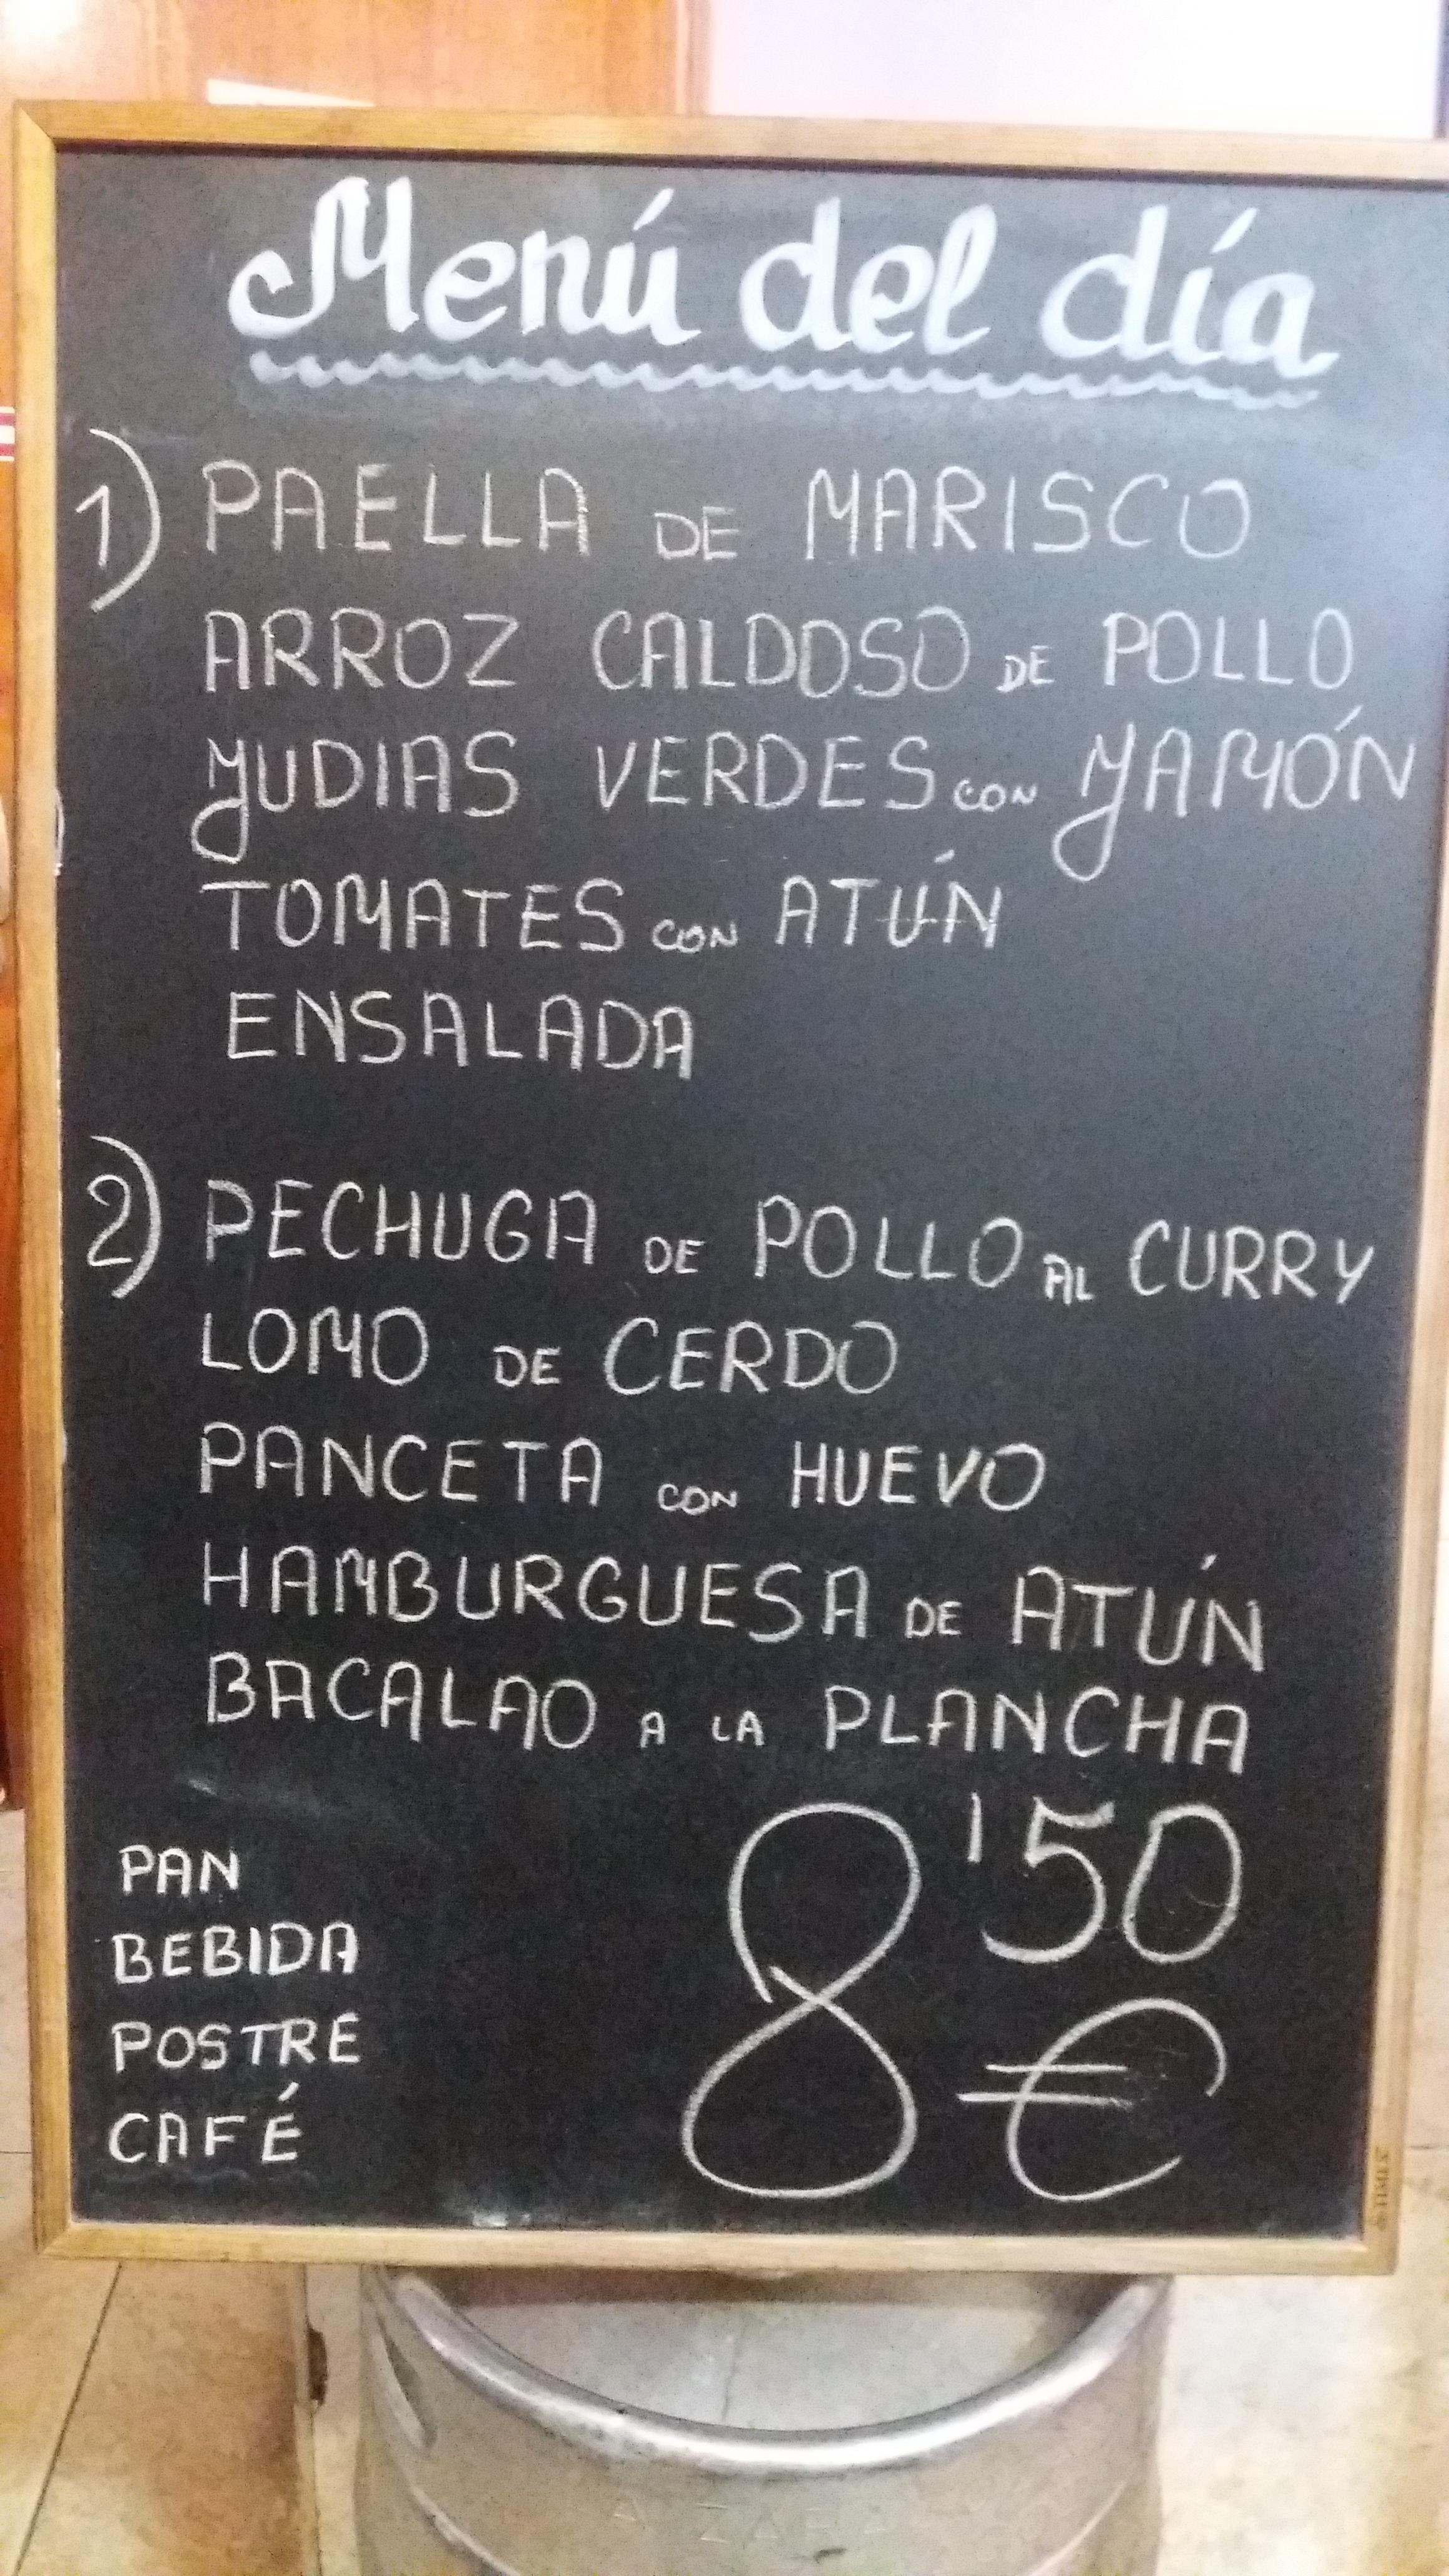 Menú del día
1) PAELLA DE MARISCO
ARROZ CALDOSO DE POLLO
JUDIAS VERDES CON JAMÓN
TOMATES CON ATÚN
ENSALADA
2) PECHUGA DE POLLO AL CURRY
LOMO DE CERDO
PANCETA CON HUEVO
HAMBURGUESA DE ATÚN
BACALAO A LA PLANCHA
PAN
BEBIDA
POSTRE
CAFÉ
8'50 €